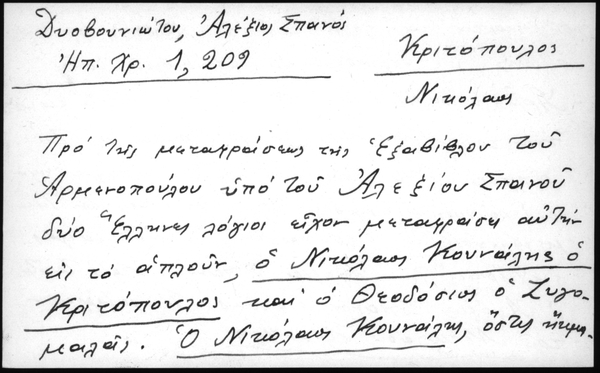 Δυοβουνιώτου, Ἀλέξιος Σπανός
Ἠπ. Χρ. 1, 209
Κριτόπουλος
Νικόλαος
Πρό τῆς μεταφράσεως τῆς Ἑξαβίβλου τοῦ
Ἀρμενοπούλου ὑπό τοῦ Ἀλεξίου Σπανοῦ
δύο Ἕλληνες λόγιοι εἶχον μεταφράσει αὐτήν
εἰς τό ἁπλοῦν, ὁ Νικόλαος Κουνάλης ὁ
Κριτόπουλος καί ὁ Θεοδόσιος ὁ Ζυγο-
μαλᾶς. Ὁ Νικόλαος Κουνάλης, ὅστις ἤκμα-